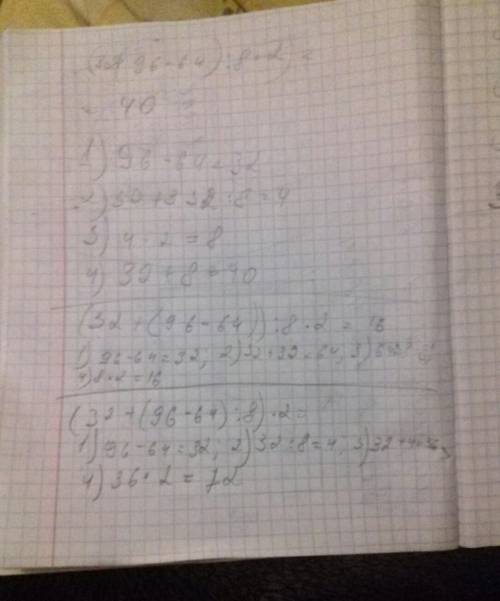 96-64) : 8 · 2) =
= 40
1) 96-64=32
2) 32 : 8 = 4
3) 4 · 2 = 8
4) 32+8=40
(32+(96-64)) : 8 · 2 = 16
1) 96-64=32; 2) 32+32=64; 3)
4) 8 · 2 = 16
(32+(96-64) : 8) · 2 =
1) 96-64=32; 2) 32:8=4, 3) 32+4=36
4) 36 · 2 = 72